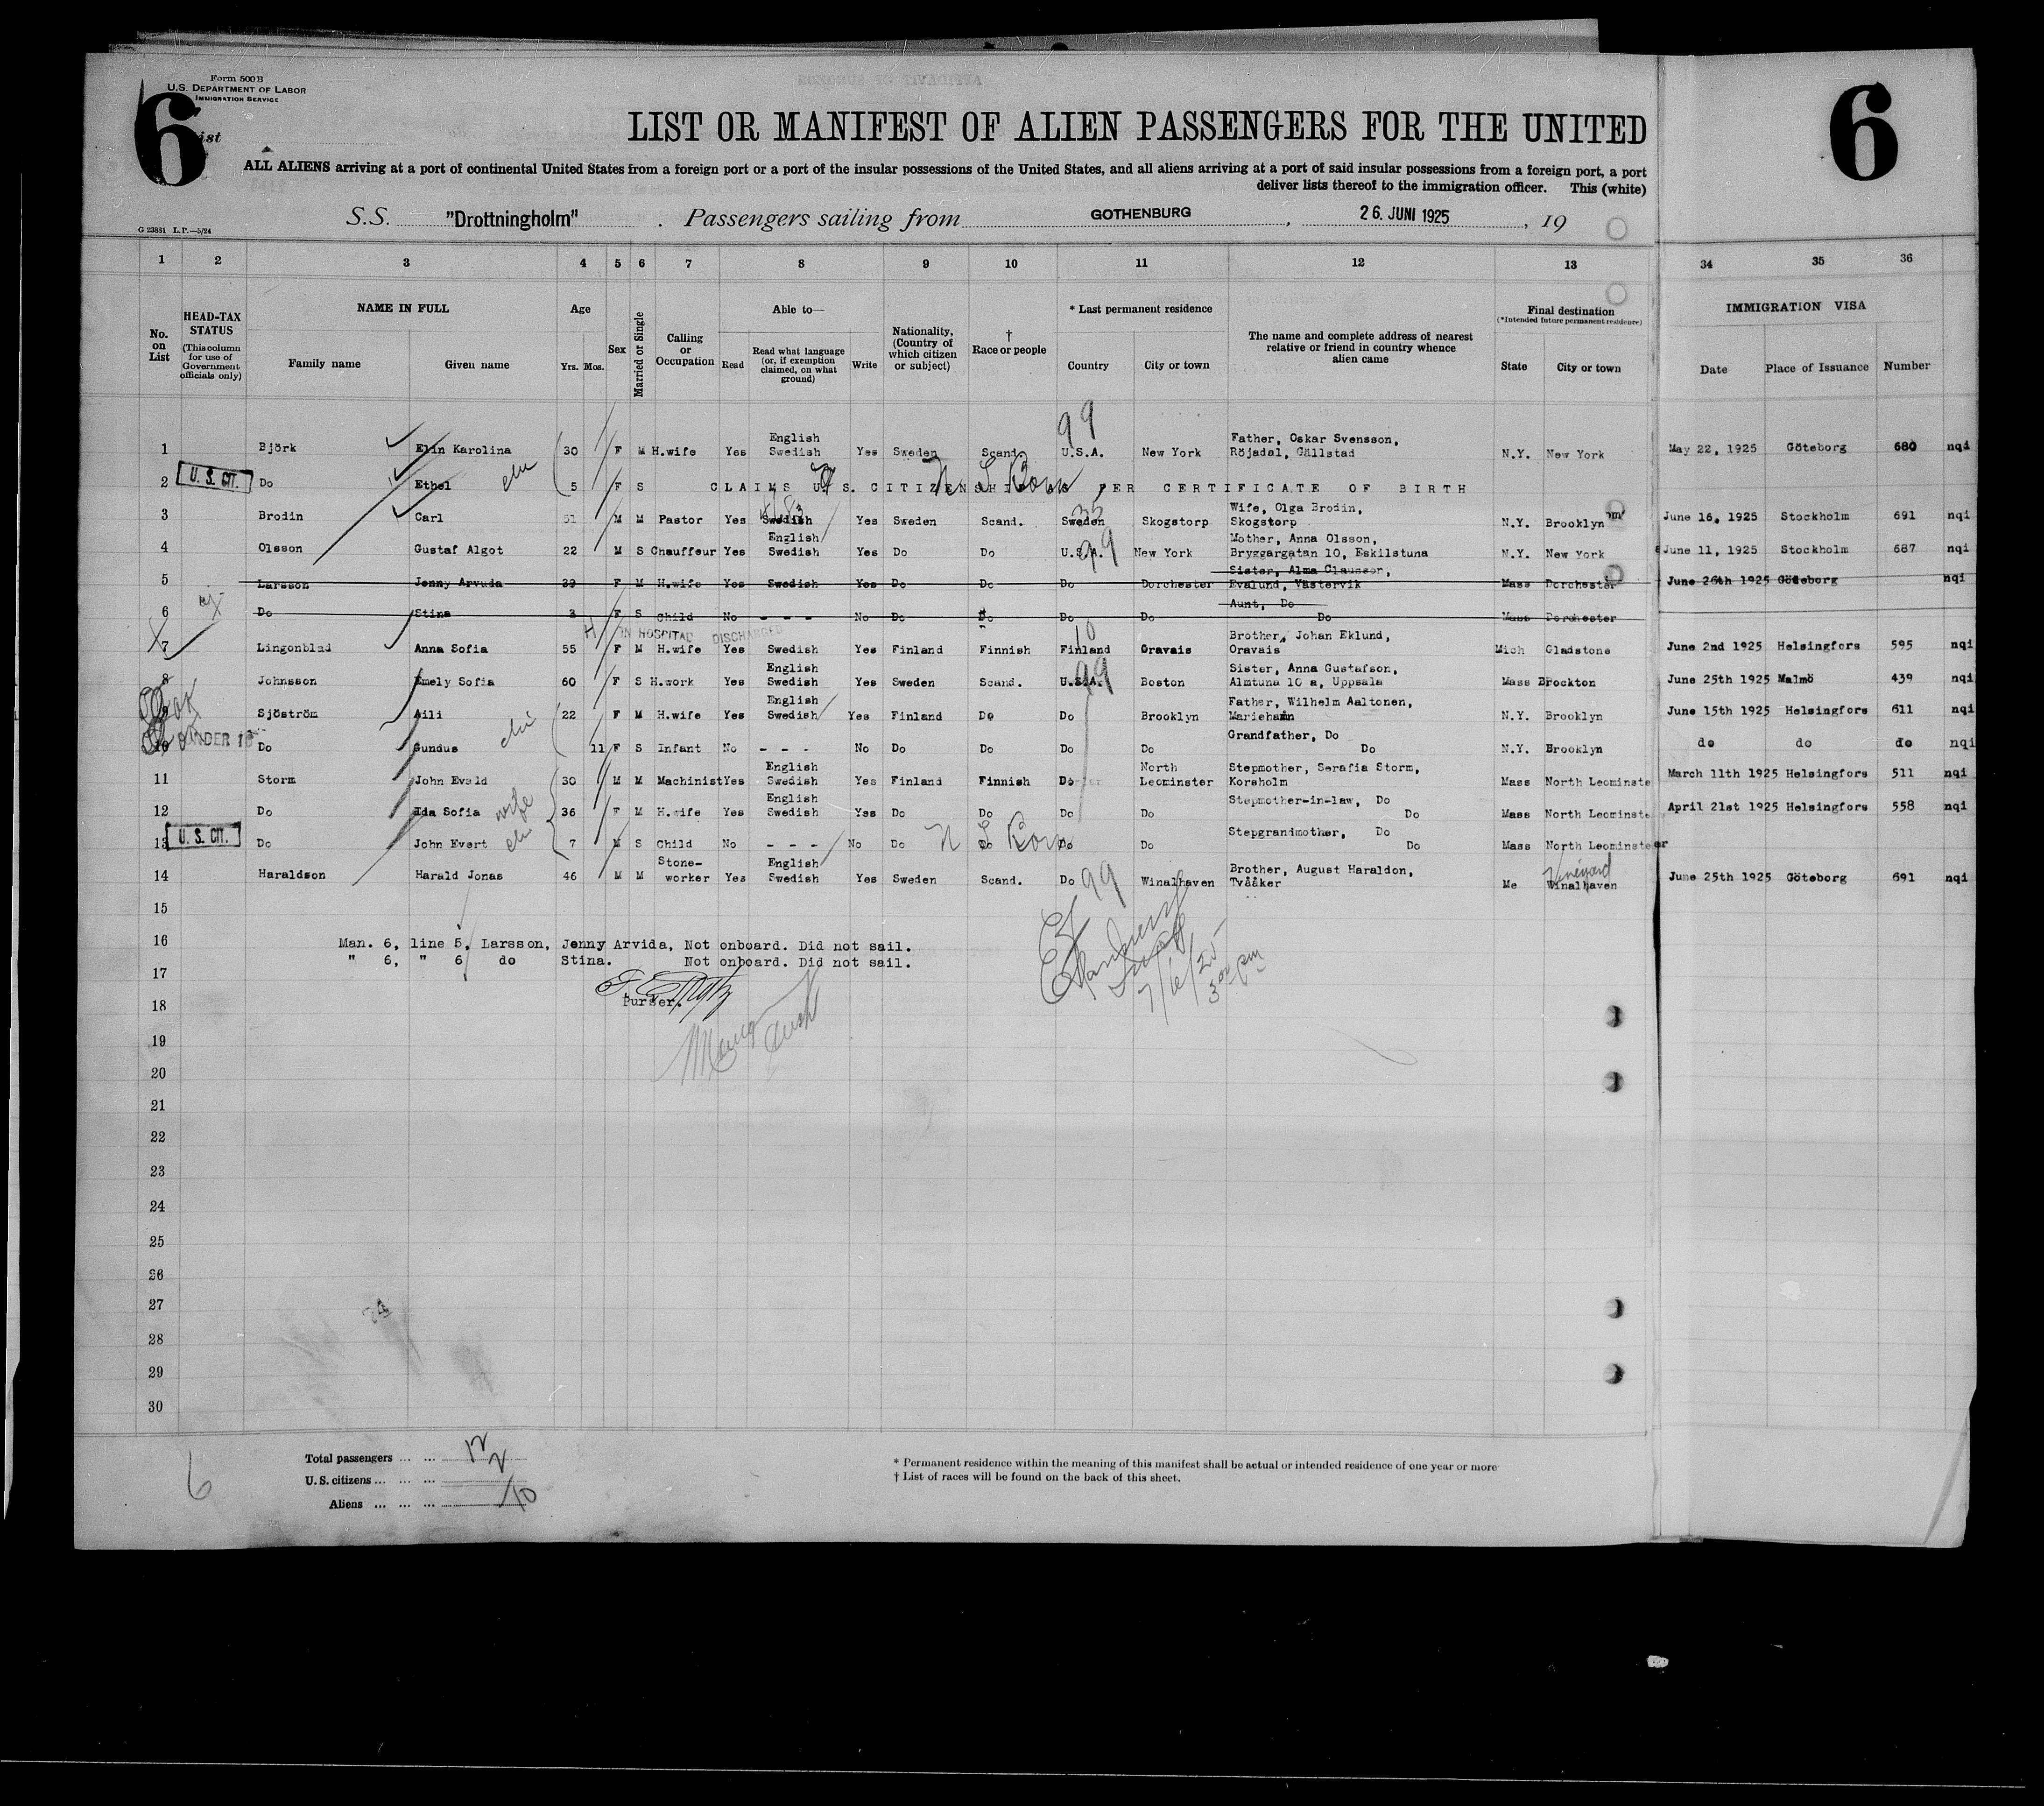 Form 500 B
U.S. DEPARTMENT OF LABOR
IMMIGRATION SERVICE
6 6
LIST OR MANIFEST OF ALIEN PASSENGERS FOR THE UNITED
ALL ALIENS arriving at a port of continental United States from a foreign port or a port of the insular possessions of the United States, and all aliens arriving at a port of said insular possessions from a foreign port, a port
deliver lists thereof to the immigration officer. This (white)
S.S. "Drottningholm" . Passengers sailing from GOTHENBURG , 26. JUNI 1925 , 19
G 23881 L.P.—5/24
1 2 3 4 5 6 7 8 9 10 11 12 13 34 35 36
No. on List
HEAD-TAX STATUS (This column for use of Government officials only)
NAME IN FULL Family name Given name
Age Yrs. Mos.
Sex
Married or Single
Calling or Occupation
Able to— Read Read what language (or, if exemption claimed, on what ground) Write
Nationality, (Country of which citizen or subject)
† Race or people
* Last permanent residence Country City or town
The name and complete address of nearest relative or friend in country whence alien came
Final destination (*Intended future permanent residence) State City or town
IMMIGRATION VISA Date Place of Issuance Number
99
1 Björk Elin Karolina 30 F M H.wife Yes English Swedish Yes Sweden Scand. U.S.A. New York Father, Oskar Svensson, Röjadal, Gällstad N.Y. New York May 22, 1925 Göteborg 680 nqi
2 U.S. CIT. Do Ethel 5 F S CLAIMS U.S. CITIZENSHIP AS PER CERTIFICATE OF BIRTH
3 Brodin Carl 51 M M Pastor Yes Swedish Yes Sweden Scand. Sweden Skogstorp Wife, Olga Brodin, Skogstorp N.Y. Brooklyn June 16, 1925 Stockholm 691 nqi
4 Olsson Gustaf Algot 22 M S Chauffeur Yes English Swedish Yes Do Do U.S.A. New York Mother, Anna Olsson, Bryggargatan 10, Eskilstuna N.Y. New York June 11, 1925 Stockholm 687 nqi
5 Larsson Jenny Arvuda 39 F M H.wife Yes Swedish Yes Do Do Do Dorchester Sister, Alma Claussor, Evalund, Västervik Mass Dorchester June 26th 1925 Göteborg nqi
6 Do Stina 3 F S Child No - - - No Do Do Do Do Aunt, Do Do Mass Dorchester
IN HOSPITAL DISCHARGED
7 Lingonblad Anna Sofia 55 F M H.wife Yes Swedish Yes Finland Finnish Finland Oravais Brother, Johan Eklund, Oravais Mich Gladstone June 2nd 1925 Helsingfors 595 nqi
8 Johnsson Emely Sofia 60 F S H.work Yes English Swedish Yes Sweden Scand. U.S.A. Boston Sister, Anna Gustafson, Almtuna 10 a, Uppsala Mass Brockton June 25th 1925 Malmö 439 nqi
9 Sjöström Aili 22 F M H.wife Yes English Swedish Yes Finland Do Do Brooklyn Father, Wilhelm Aaltonen, Mariehamn N.Y. Brooklyn June 15th 1925 Helsingfors 611 nqi
10 UNDER 16 Do Gundus 11 F S Infant No - - - No Do Do Do Do Grandfather, Do Do N.Y. Brooklyn do do do nqi
11 Storm John Evald 30 M M Machinist Yes English Swedish Yes Finland Finnish Do North Leominster Stepmother, Serafia Storm, Korsholm Mass North Leominste March 11th 1925 Helsingfors 511 nqi
12 Do Ida Sofia wife 36 F M H.wife Yes English Swedish Yes Do Do Do Do Stepmother-in-law, Do Do Mass North Leominste April 21st 1925 Helsingfors 558 nqi
13 U.S. CIT. Do John Evert 7 M S Child No - - - No Do Do Do Do Stepgrandmother, Do Do Mass North Leominster
14 Haraldson Harald Jonas 46 M M Stone-worker Yes English Swedish Yes Sweden Scand. Do 99 Winalhaven Brother, August Haraldon, Tvååker Me Winalhaven Vineyard June 25th 1925 Göteborg 691 nqi
15
16 Man. 6, line 5, Larsson, Jenny Arvida, Not onboard. Did not sail.
" 6, " 6 do Stina. Not onboard. Did not sail.
17
Purser.
7/6/25
3 00 pm
18
19
20
21
22
23
24
25
26
27
28
29
30
Total passengers ... ... 12
U.S. citizens ... ... ... 2
Aliens ... ... ... 10
6
* Permanent residence within the meaning of this manifest shall be actual or intended residence of one year or more
† List of races will be found on the back of this sheet.